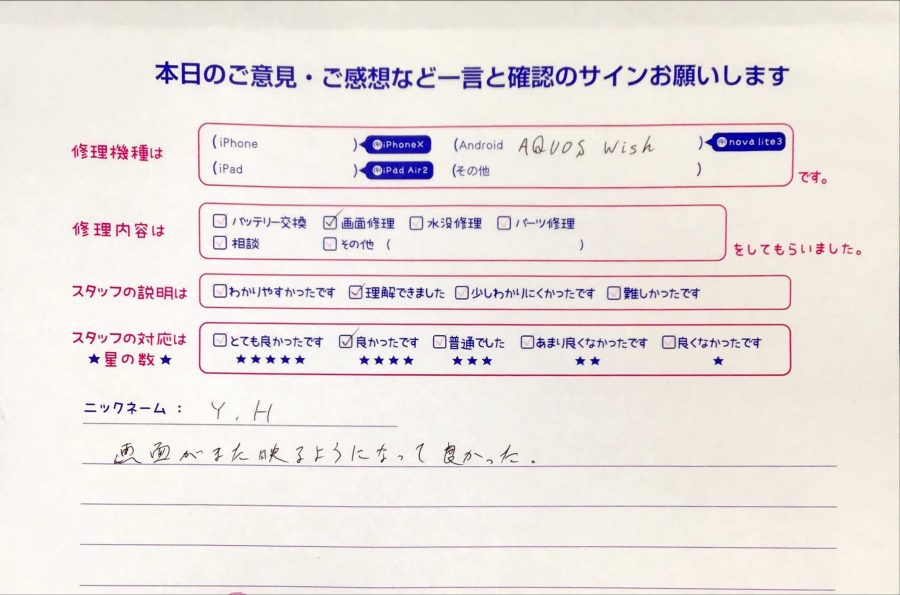 本日のご意見・ご感想など一言と確認のサインお願いします
修理機種は (iPhone )例iPhoneX (Android AQUOS wish )例nova lite3
(iPad )例iPad Air2 (その他 ) です。
修理内容は □バッテリー交換 ☑画面修理 □水没修理 □パーツ修理
□相談 □その他 ( ) をしてもらいました。
スタッフの説明は □わかりやすかったです ☑理解できました □少しわかりにくかったです □難しかったです
スタッフの対応は □とても良かったです ☑良かったです □普通でした □あまり良くなかったです □良くなかったです
★星の数★ ★★★★★ ★★★★ ★★★ ★★ ★
ニックネーム： Y.H
画面がまた映るようになって良かった.